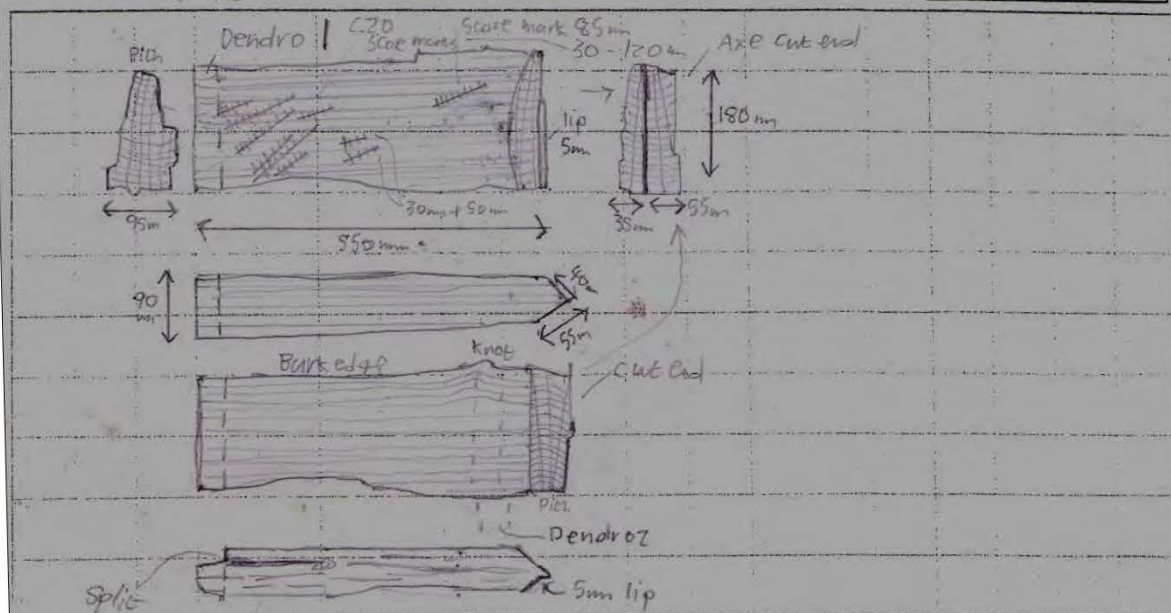 Dendro 1
Score marks
Score mark 85mm
30 - 120m
Axe cut end
Pith
lip
5mm
180mm
95m
30mm + 50mm
35m
55m
550mm
90
mm
40m
55m
Bark edge
Knot
Cut end
Pith
Dendro 2
Split
5mm lip